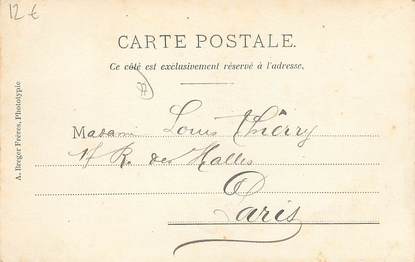 12 €
CARTE POSTALE.
Ce côté est exclusivement réservé à l'adresse.
77
Madame Louis Thierry
17 R. des Halles
Paris
A. Breger Frères, Phototypie